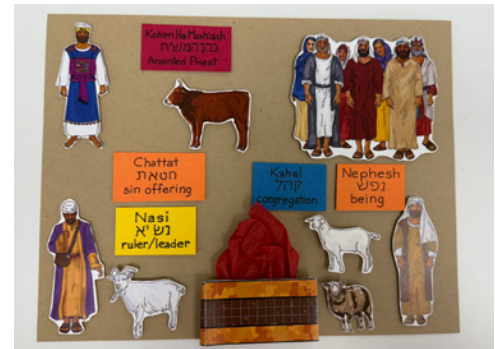 Kohen Ha Mashiach
כהן המשיח
Anointed Priest
Chattat
חטאת
sin offering
Kahal
קהל
congregation
Nephesh
נפש
being
Nasi
נשיא
ruler/leader